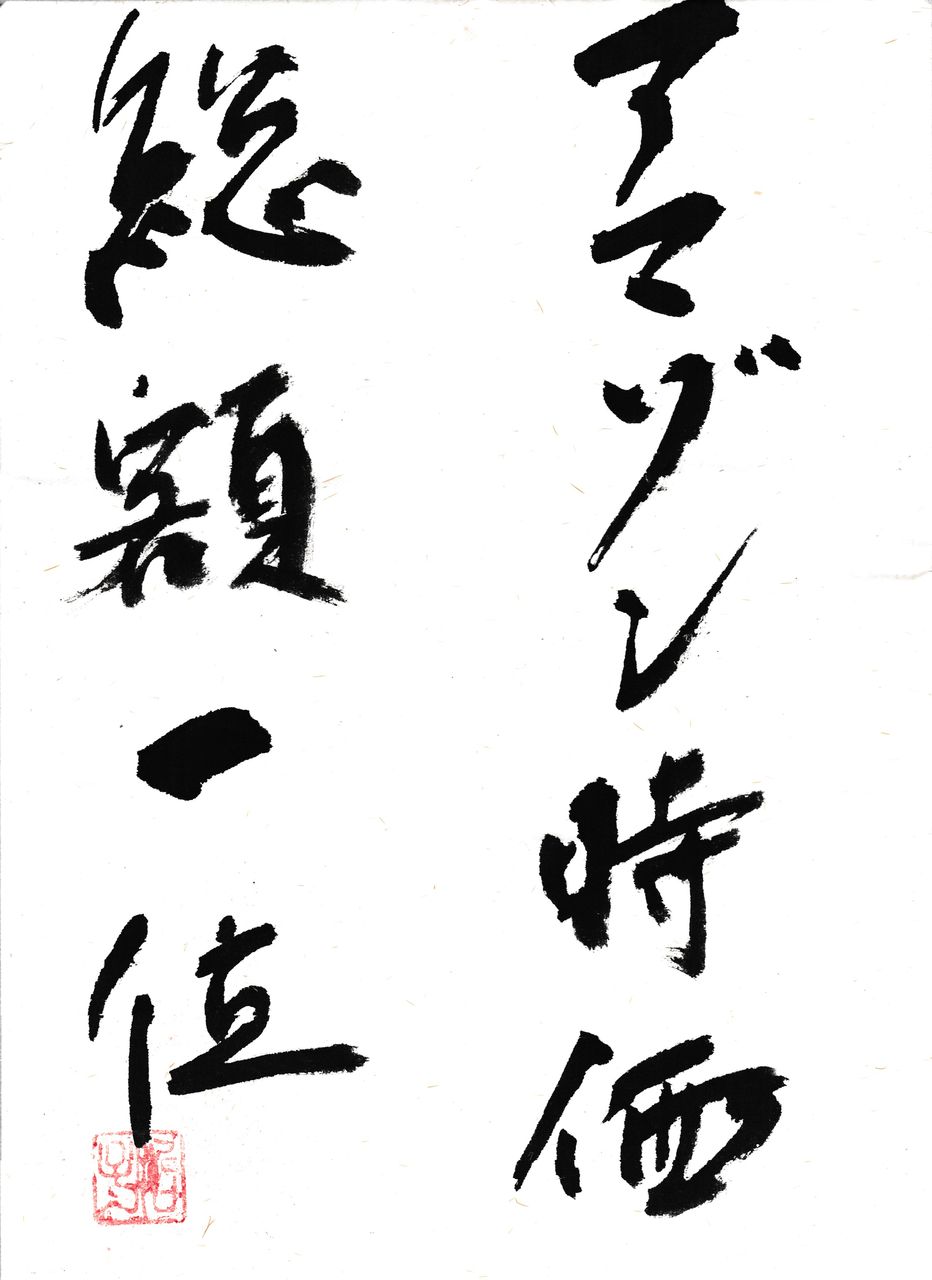 アマゾン時価
総額一位